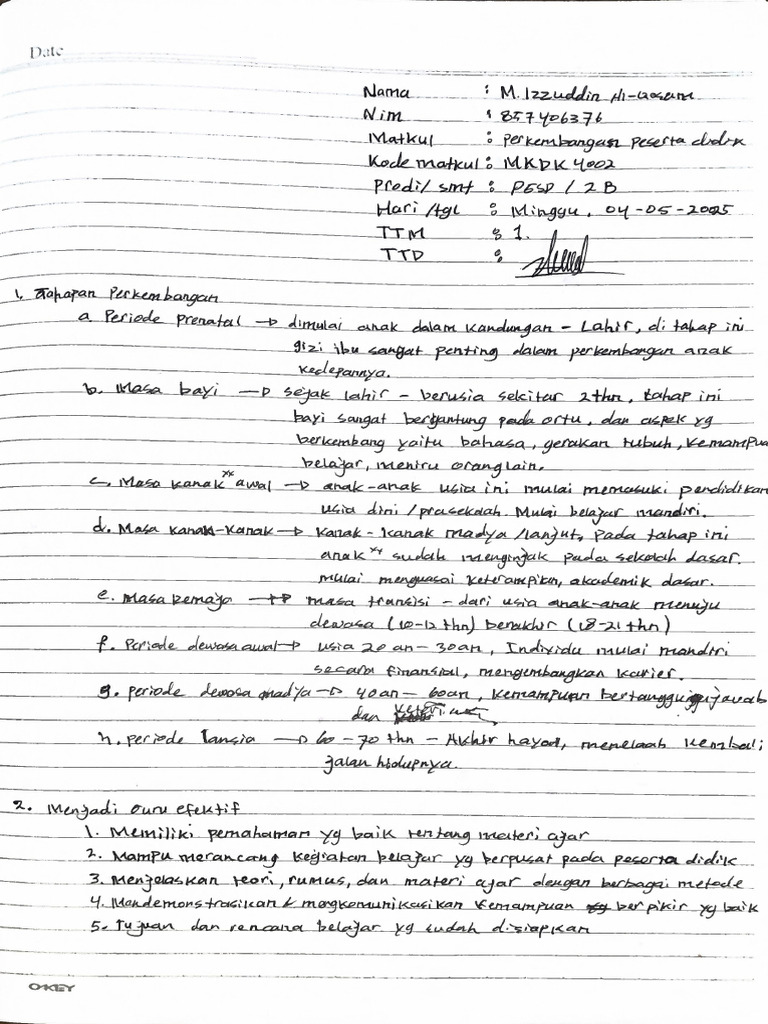 Date
Nama : M. Izzuddin Al-
Nim : 857406376
Matkul : perkembangan peserta didik
Kode matkul : MKDK 4002
Prodi/smt : PGSD / 2 B
Hari /tgl : Minggu, 04-05-2025
TTM : 1.
TTD :
1. Tahapan Perkembangan
a. Periode prenatal → dimulai anak dalam kandungan - Lahir, di tahap ini
gizi ibu sangat penting dalam perkembangan anak
kedepannya.
b. Masa bayi → sejak lahir - berusia sekitar 2 thn, tahap ini
bayi sangat bergantung pada ortu, dan aspek yg
berkembang yaitu bahasa, gerakan tubuh, kemampua
belajar, meniru orang lain.
c. Masa kanak xx awal → anak-anak usia ini mulai memasuki pendidikan
usia dini / prasekolah. Mulai belajar mandiri.
d. Masa kanak-kanak → kanak-kanak madya /lanjut, pada tahap ini
anak xx sudah menginjak pada sekolah dasar.
mulai menguasai keterampilan, akademik dasar.
e. Masa remaja → masa transisi - dari usia anak-anak menuju
dewasa (10-12 thn) berakhir (18-21 thn)
f. Periode dewasa awal → usia 20 an - 30 an, Individu mulai mandiri
secara finansial, mengembangkan karier.
g. periode dewasa madya → 40 an - 60 an, kemampuan bertanggung jawab
dan
h. periode lansia → 60 - 70 thn - Akhir hayat, menelaah kembali
jalan hidupnya.
2. Menjadi Guru efektif
1. Memiliki pemahaman yg baik tentang materi ajar
2. Mampu merancang kegiatan belajar yg berpusat pada peserta didik
3. Menjelaskan teori, rumus, dan materi ajar dengan berbagai metode
4. Mendemonstrasikan & mengkomunikasikan kemampuan berpikir yg baik
5. Tujuan dan rencana belajar yg sudah disiapkan
O-KEY